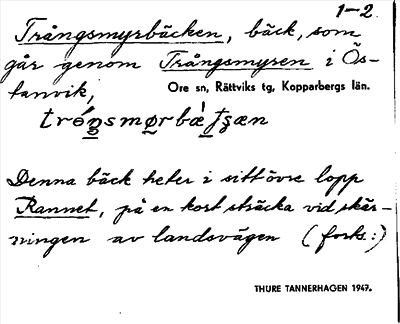 1-2
Trångsmyrbäcken, bäck, som
går genom Trångsmyren i Ös-
tanvik,
Ore sn, Rättviks tg, Kopparbergs län.
Denna bäck heter i sitt övre lopp
Rannet, på en kort sträcka vid skär-
ningen av landsvägen (forts.:)
THURE TANNERHAGEN 1947.